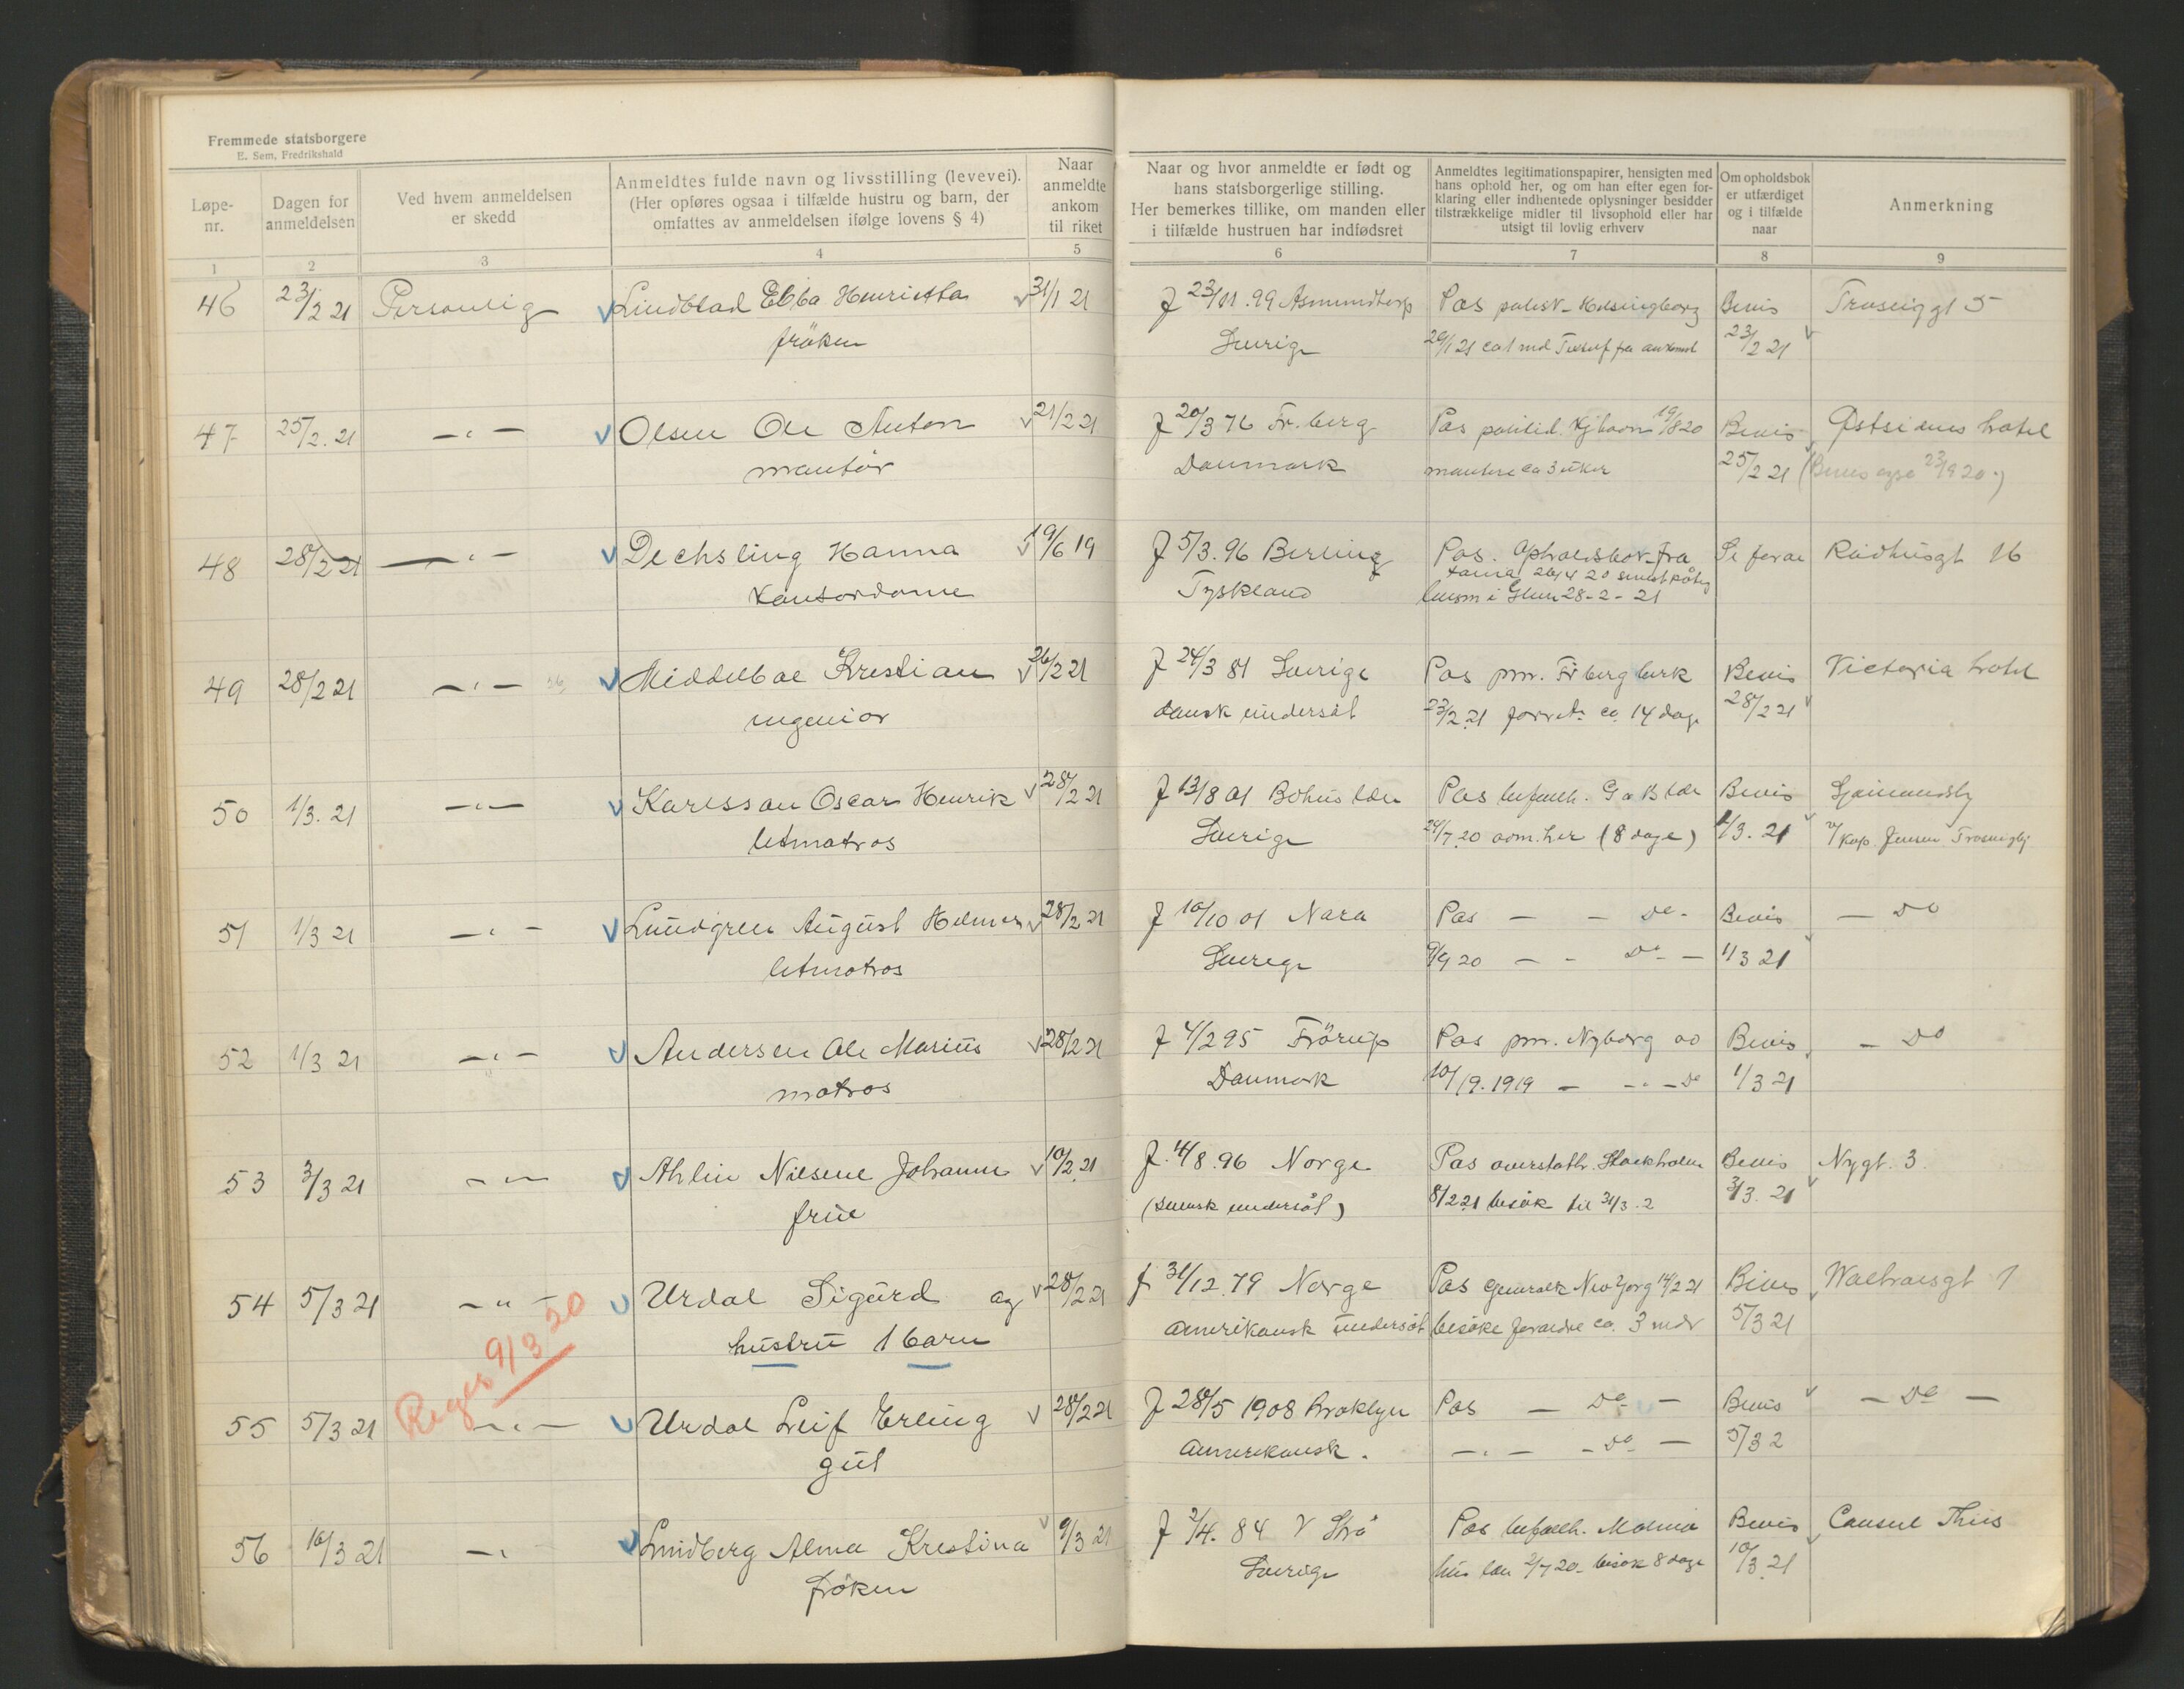 Fremmede statsborgere
E. Sem, Fredrikshald
Løpe-nr.
Dagen for anmeldelsen
Ved hvem anmeldelsen er skedd
Anmeldtes fulde navn og livsstilling (levevei).
(Her opføres ogsaa i tilfælde hustru og barn, der
omfattes av anmeldelsen ifølge lovens § 4)
Naar anmeldte ankom til riket
Naar og hvor anmeldte er født og
hans statsborgerlige stilling.
Her bemerkes tillike, om manden eller
i tilfælde hustruen har indfødsret
Anmeldtes legitimationspapirer, hensigten med
hans ophold her, og om han efter egen for-
klaring eller indhentede oplysninger besidder
tilstrækkelige midler til livsophold eller har
utsigt til lovlig erhverv
Om opholdsbok
er utfærdiget
og i tilfælde
naar
Anmerkning
1 2 3 4 5 6 7 8 9
46 23/2 21 Personlig Lindblad Ebba Henrietta 31/1 21 f 23/11.99 Asmundtorp Pas polisk. Helsingborg Bevis Trosviggt 5
frøken Sverige 23/2 21
47 25/2. 21 — " — Olsen Ole Anton 21/2 21 f 20/3 76 Fr.berg Pas politid. Kjbavn 19/8 20 Bevis Østsidens hotel
montør Danmark montere ca 3 uker 25/2 21 (Bevis ogsa 23/9 20.)
48 28/2 21 — " — Dechsling Hanna 19/6 19 f 5/3.96 Berling Pas. Opholdsbok fra Se forar Raadhusgt 16
Kontordame Tyskland lensm i Glem 28-2-21
49 28/2 21 — " — Middelboe Kristian 26/2 21 f 24/3 81 Sverige Pas pm. Frberg birk Bevis Victoria hotel
ingeniør dansk undersåt 23/2.21 forretn ca. 14 dage 28/2 21
50 1/3. 21 — " — Karlsson Oscar Henrik 28/2 21 f 13/8 01 Bohus län Pas befallh. G o B län Bevis
letmatros Sverige 24/7.20 aom. her (8 dage) 1/3. 21 v/ Kap. Jensen
51 1/3 21 — " — Lundgren August Helmer 28/2 21 f 10/10 01 Nara Pas — — Do - Bevis — Do
letmatros Sverige 9/9 20 — - Do - — 1/3 21
52 1/3 21 — " — Andersen Ole Marius 28/2 21 f 4/2 95 Frörup Pas pm. Nyborg Bevis — Do
matros Danmark 10/9.1919 — - " - Do 1/3 21
53 3/3 21 — " — Ahlin Nilsene Johanne 10/2.21 f. 14/8.96 Norge Pas overstath. Stockholm Bevis Nygt. 3.
frue (svensk undersåt) 8/2 21 besøk til 31/3.2 3/3. 21
54 5/3 21 — " — Urdal Sigurd og 28/2 21 f 31/12.79 Norge Pas Generalk New Yorg 14/2 21 Bevis 1
hustru 1 barn amerikansk undersåt besøke forældre ca. 3 mdr 5/3 21
Reges 9/3 20
55 5/3 21 — " — Urdal Leif Erling 28/2 21 f 28/5 1908 Broklyn Pas — Do — Bevis — Do —
gut Amerikansk. — " — - Do — 5/3 2
56 10/3 21 — " Lundberg Alma Kristina 9/3 21 f 2/4. 84 V Strø Pas befallh. Malmø Bevis Consul Thiis
frøken Sverige hus län 2/7 20 - besøk 8 dage 10/3.21